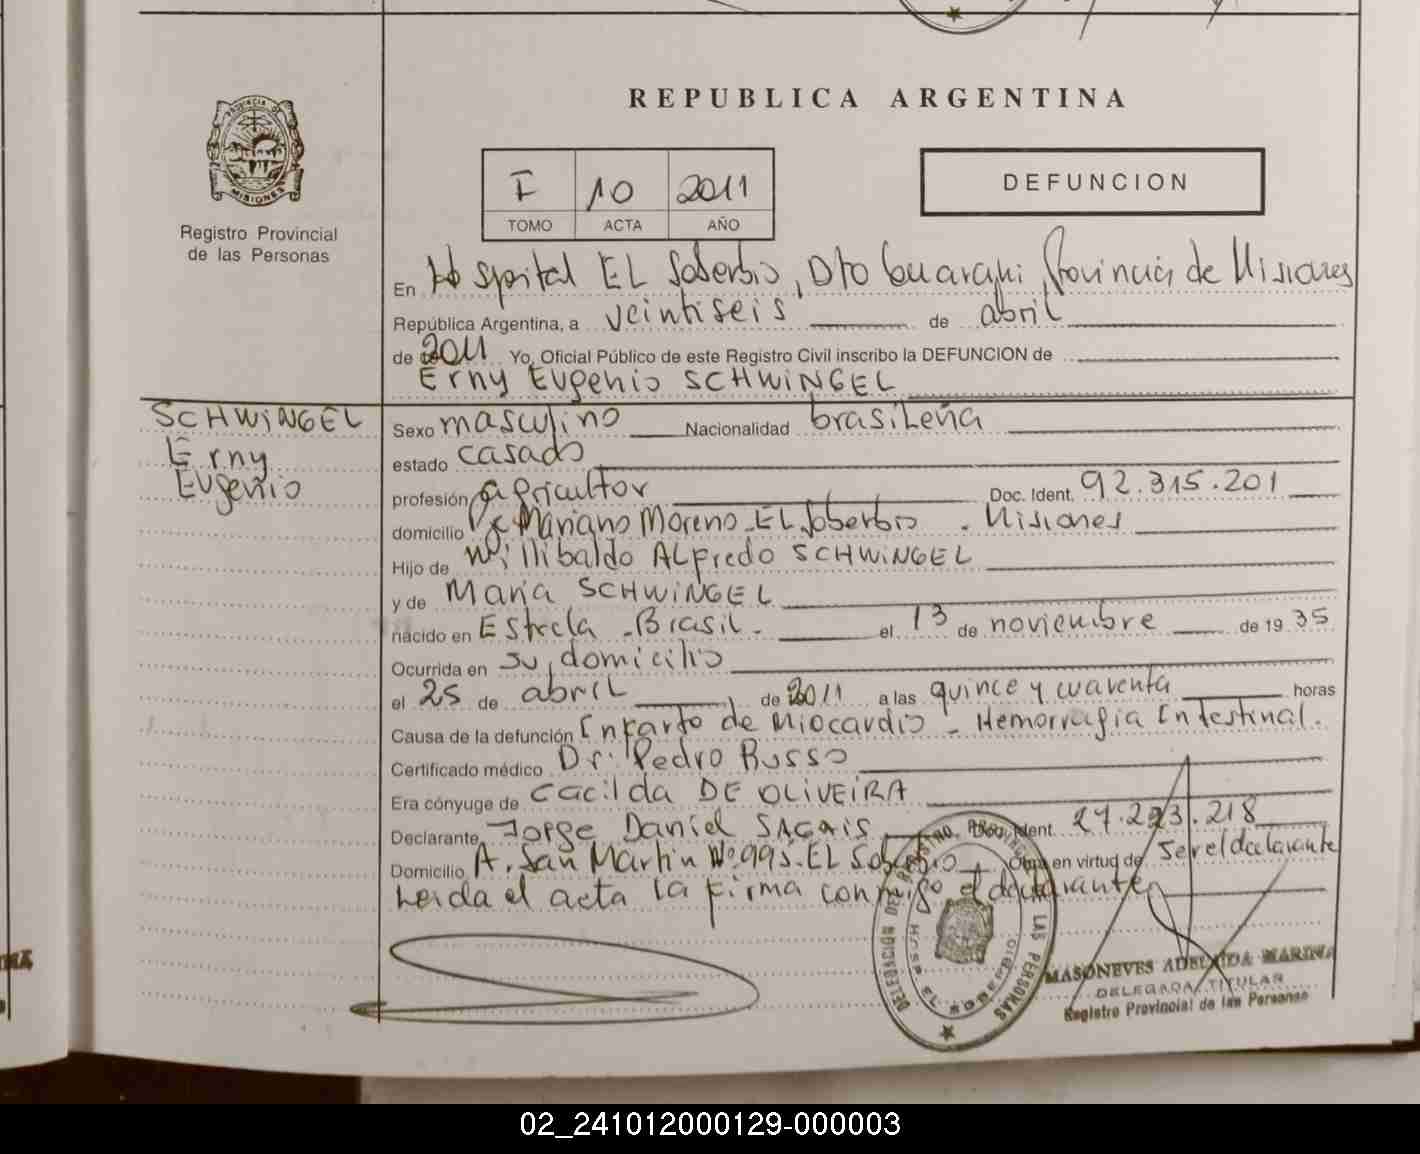 REPUBLICA ARGENTINA
PROVINCIA DE
MISIONES
Registro Provincial
de las Personas
I 10 2011
TOMO ACTA AÑO
DEFUNCION
En Hospital EL Soberbio, Dto Guarani, Provincia de Misiones
República Argentina, a veintiseis de abril
de 2011 Yo, Oficial Público de este Registro Civil inscribo la DEFUNCION de
Erny Eugenio SCHWiNGEL
SCHWiNGEL
Erny
Eugenio
Sexo masculino Nacionalidad brasileña
estado casado
profesión agricultor Doc. Ident. 92.315.201
domicilio Mariano Moreno - EL Soberbio - Misiones
Hijo de Willibaldo ALfredo SCHWiNGEL
y de María SCHWiNGEL
nacido en Estrela - Brasil - el 13 de noviembre de 19 35
Ocurrida en su domicilio
el 25 de abril de 2011 a las quince y cuarenta horas
Causa de la defunción Infarto de Miocardio - Hemorragia Intestinal.
Certificado médico Dr. Pedro Russo
Era cónyuge de Cacilda DE OLiVEiRA
Declarante Jorge Daniel SAGAIS Doc. Ident. 27.223.218
Domicilio A. San Martin Nº 995. EL Soberbio Obra en virtud de ser el declarante
Leida el acta la firma conmigo el declarante
DELEGACION DEL REGISTRO PROVINCIAL LAS PERSONAS
EL SOBERBIO
MASONEVES ADELAIDA MARINA
DELEGADA TITULAR
Registro Provincial de las Personas
02_241012000129-000003